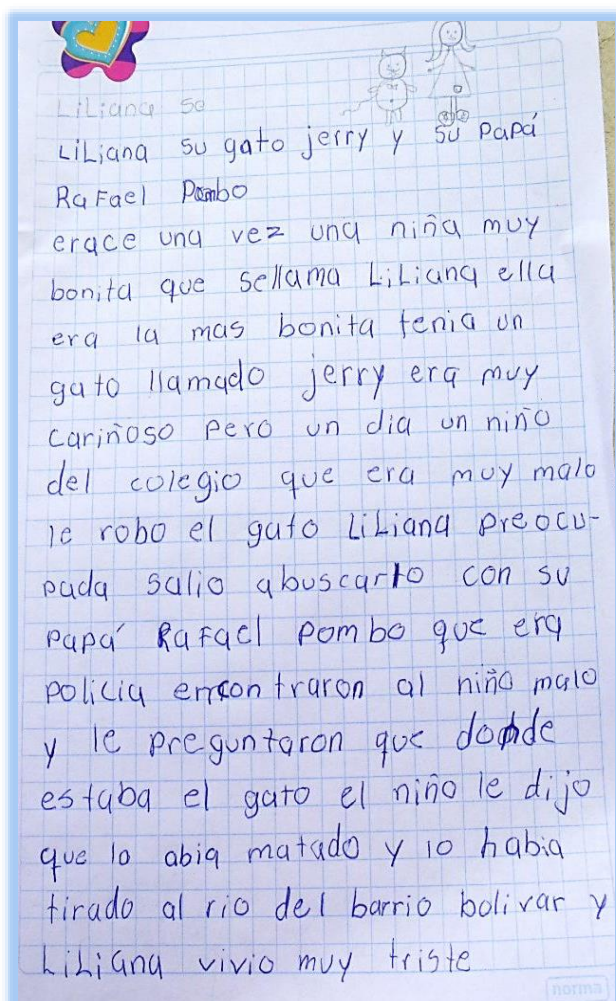 LiLiana se
LiLiana su gato jerry y su Papá
RaFael Pombo
erace una vez una niña muy
bonita que sellama LiLiana ella
era la mas bonita tenia un
gato llamado jerry era muy
cariñoso pero un dia un niño
del colegio que era muy malo
le robo el gato LiLiana preocu-
pada salio abuscarlo con su
papá RaFael pombo que era
policia encontraron al niño malo
y le preguntaron que donde
estaba el gato el niño le dijo
que lo abia matado y lo habia
tirado al rio del barrio bolivar y
LiLiana vivio muy triste
norma